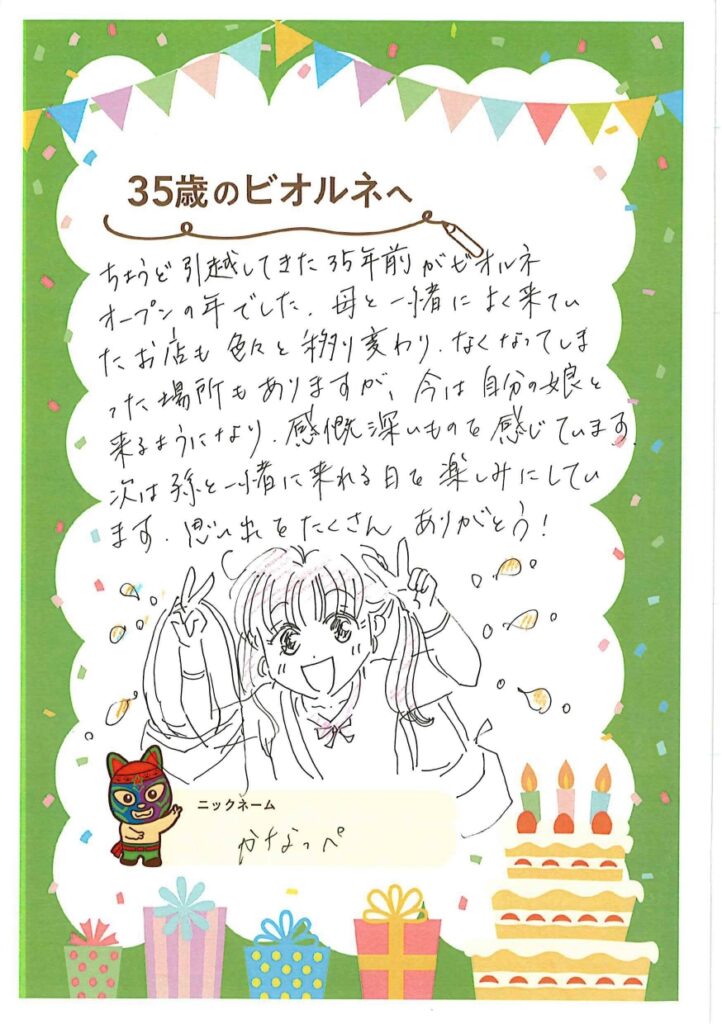 35歳のビオルネへ
ちょうど引越してきた35年前がビオルネ
オープンの年でした．母と一緒によく来てい
たお店も色々と移り変わり．なくなってしま
った場所もありますが、今は自分の娘と
来るようになり．感慨深いものを感じています．
次は孫と一緒に来れる日を楽しみにしてい
ます．思い出をたくさん ありがとう！
ニックネーム
かなっぺ